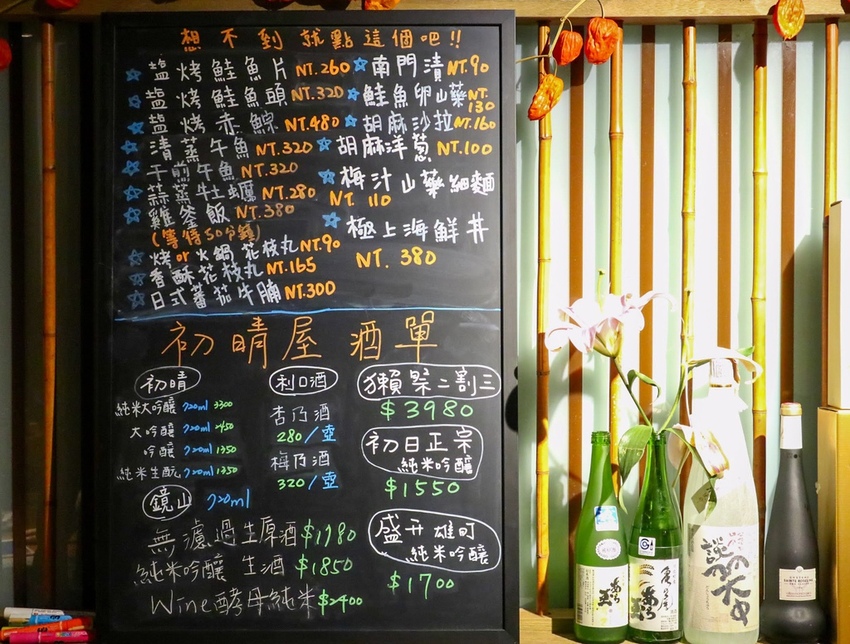 想不到就點這個吧!!
塩烤鮭魚片 NT.260
塩烤鮭魚頭 NT.320
塩烤赤鯮 NT.480
清蒸午魚 NT.320
干煎午魚 NT.320
蒜蒸牡蠣 NT.280
雞釜飯 NT.380
(等待50分鐘)
烤or火鍋花枝丸 NT.90
香酥花枝丸 NT.165
日式蕃茄牛腩 NT.300
南門漬 NT.90
鮭魚卵山藥 NT.130
胡麻沙拉 NT.160
胡麻洋蔥 NT.100
梅汁山藥細麵
NT. 110
極上海鮮丼
NT. 380
初晴屋 酒單
初晴
純米大吟釀 720ml 3300
大吟釀 720ml 2450
吟釀 720ml 1350
純米生酛 720ml 1350
鏡山 720ml
無濾過生原酒 $1980
純米吟釀 生酒 $1850
Wine酵母純米 $2400
利口酒
杏乃酒
280/壺
梅乃酒
320/壺
獺祭二割三
$3980
初日正宗
純米吟釀
$1550
盛升雄町
純米吟釀
$1700